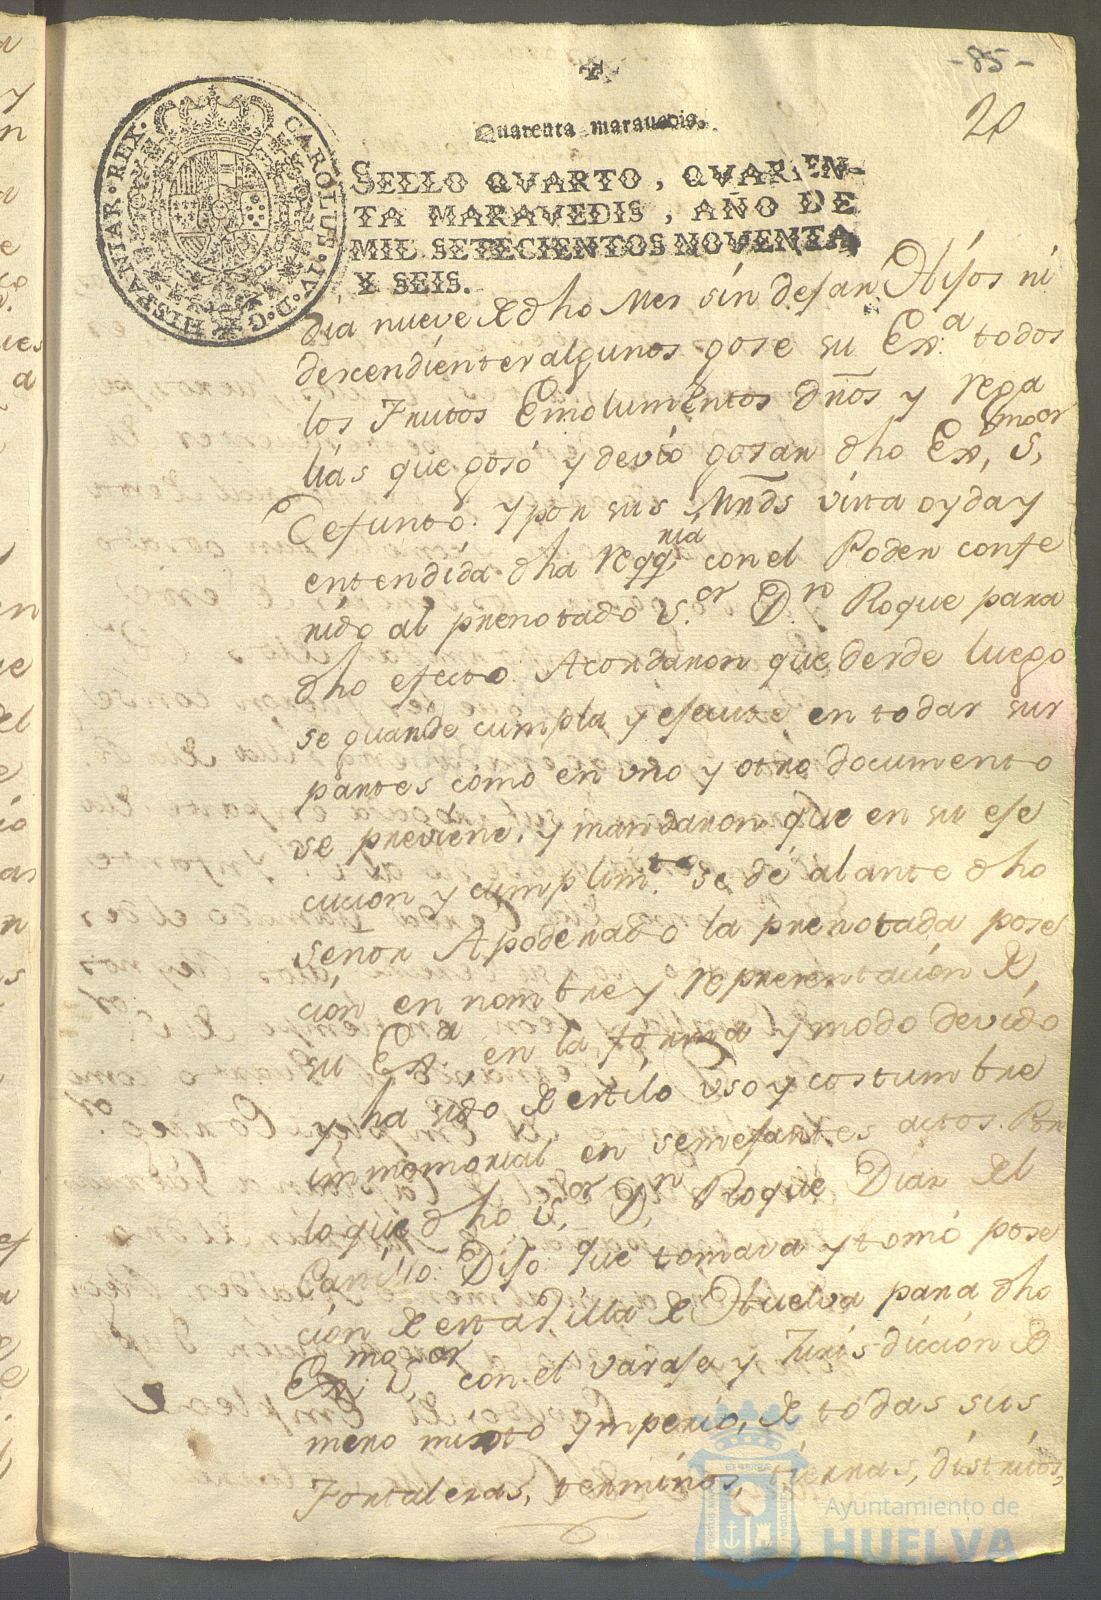 -85-
20
Quarenta maravedis.
SELLO QVARTO, QVAREN-
TA MARAVEDIS, AÑO DE
MIL SETECIENTOS NOVENTA
Y SEIS.
CAROLUS·IV·D·G·HISPANIAR·REX·
dia nueve de dho Mes sin dejar Hijos ni
descendientes algunos gose su Ex.ª todos
los Frutos Emolumentos dr̃os y rega
lias que gosó y devió gosar dho Ex,mo S,or
Defunto: y por sus Mr̃ds vista oyda y
entendida dha reqq,ria con el Poder confe
rido al prenotado S.or D.n Roque para
dho efecto: Acordaron que desde luego
se guarde cumpla y efecute en todas sus
partes como en uno y otro documento
se previene, y mandaron que en su efe
cucion y cumplim.to se dé al ante dho
señor Apoderado la prenotada pose
ción en nombre y representacion de
su Ex,ª en la forma y modo devido
y ha sido de estilo uso y costumbre
immemorial en semefantes actos. Por
lo que dho S,or D,n Roque Diaz del
Carillo: Difo: que tomava y tomó pose
ción de esta Villa de Huelva para dho
Ex,mo S,or con el vasafe y Jurisdicción de
mero misto ymperio, de todas sus
Fortaleras, terminos, tierras, distritos,
Ayuntamiento de
HUELVA